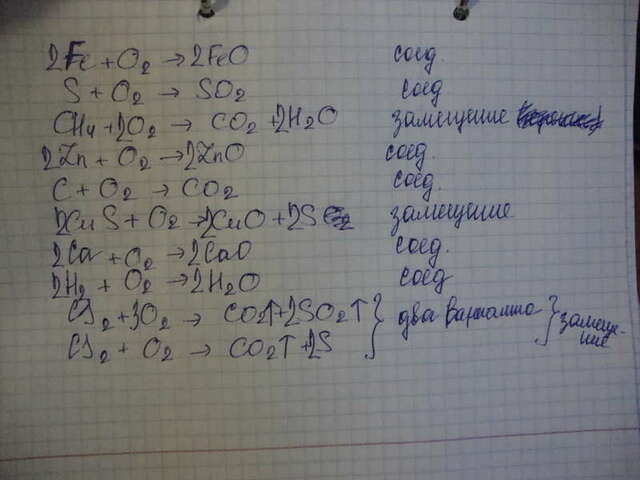 2Fe + O2 → 2FeO соед.
S + O2 → SO2 соед
CH4 + 2O2 → CO2 + 2H2O замещение
2Zn + O2 → 2ZnO соед.
C + O2 → CO2 соед.
2CuS + O2 → 2CuO + 2S замещение
2Ca + O2 → 2CaO соед.
2H2 + O2 → 2H2O соед
CS2 + 3O2 → CO2↑ + 2SO2↑ } два варианта } замеще-
CS2 + O2 → CO2↑ + 2S ние